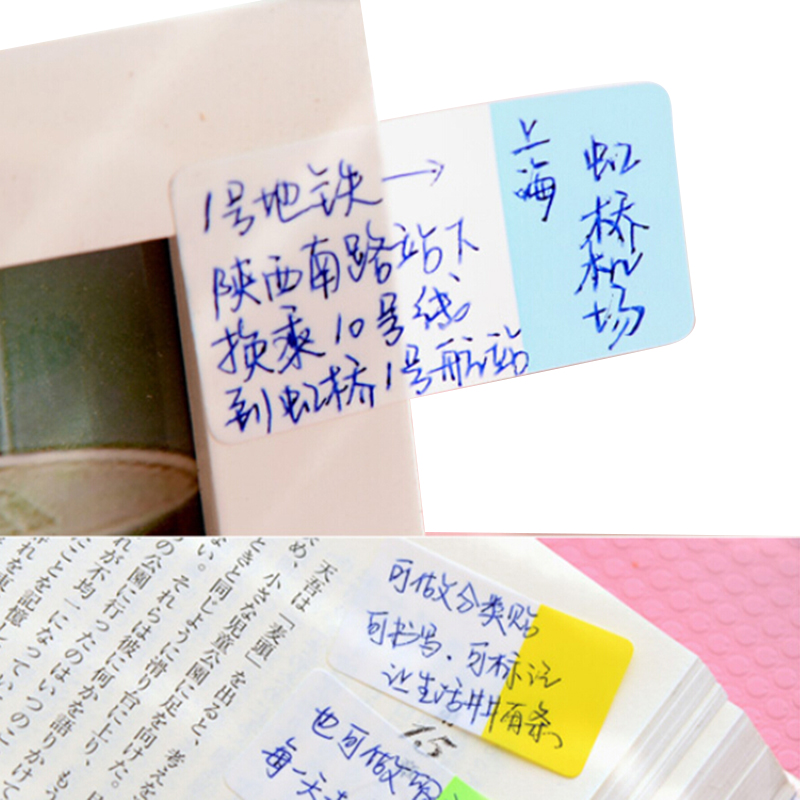 1号地铁→
陕西南路站下
换乘10号线
到虹桥1号航站
上海
虹桥机场
可做文分类贴
可书写.可标记
让生活井井有条、
也可做文
每一天
15
天吾は「麦頭」を出ると、考えを
小さな児童公園に足を向けた。
ときと同じように滑り台に上り、
それらは彼に何かを語りかけて
の公園に行ったのはいつのこ
れが不均一になってい